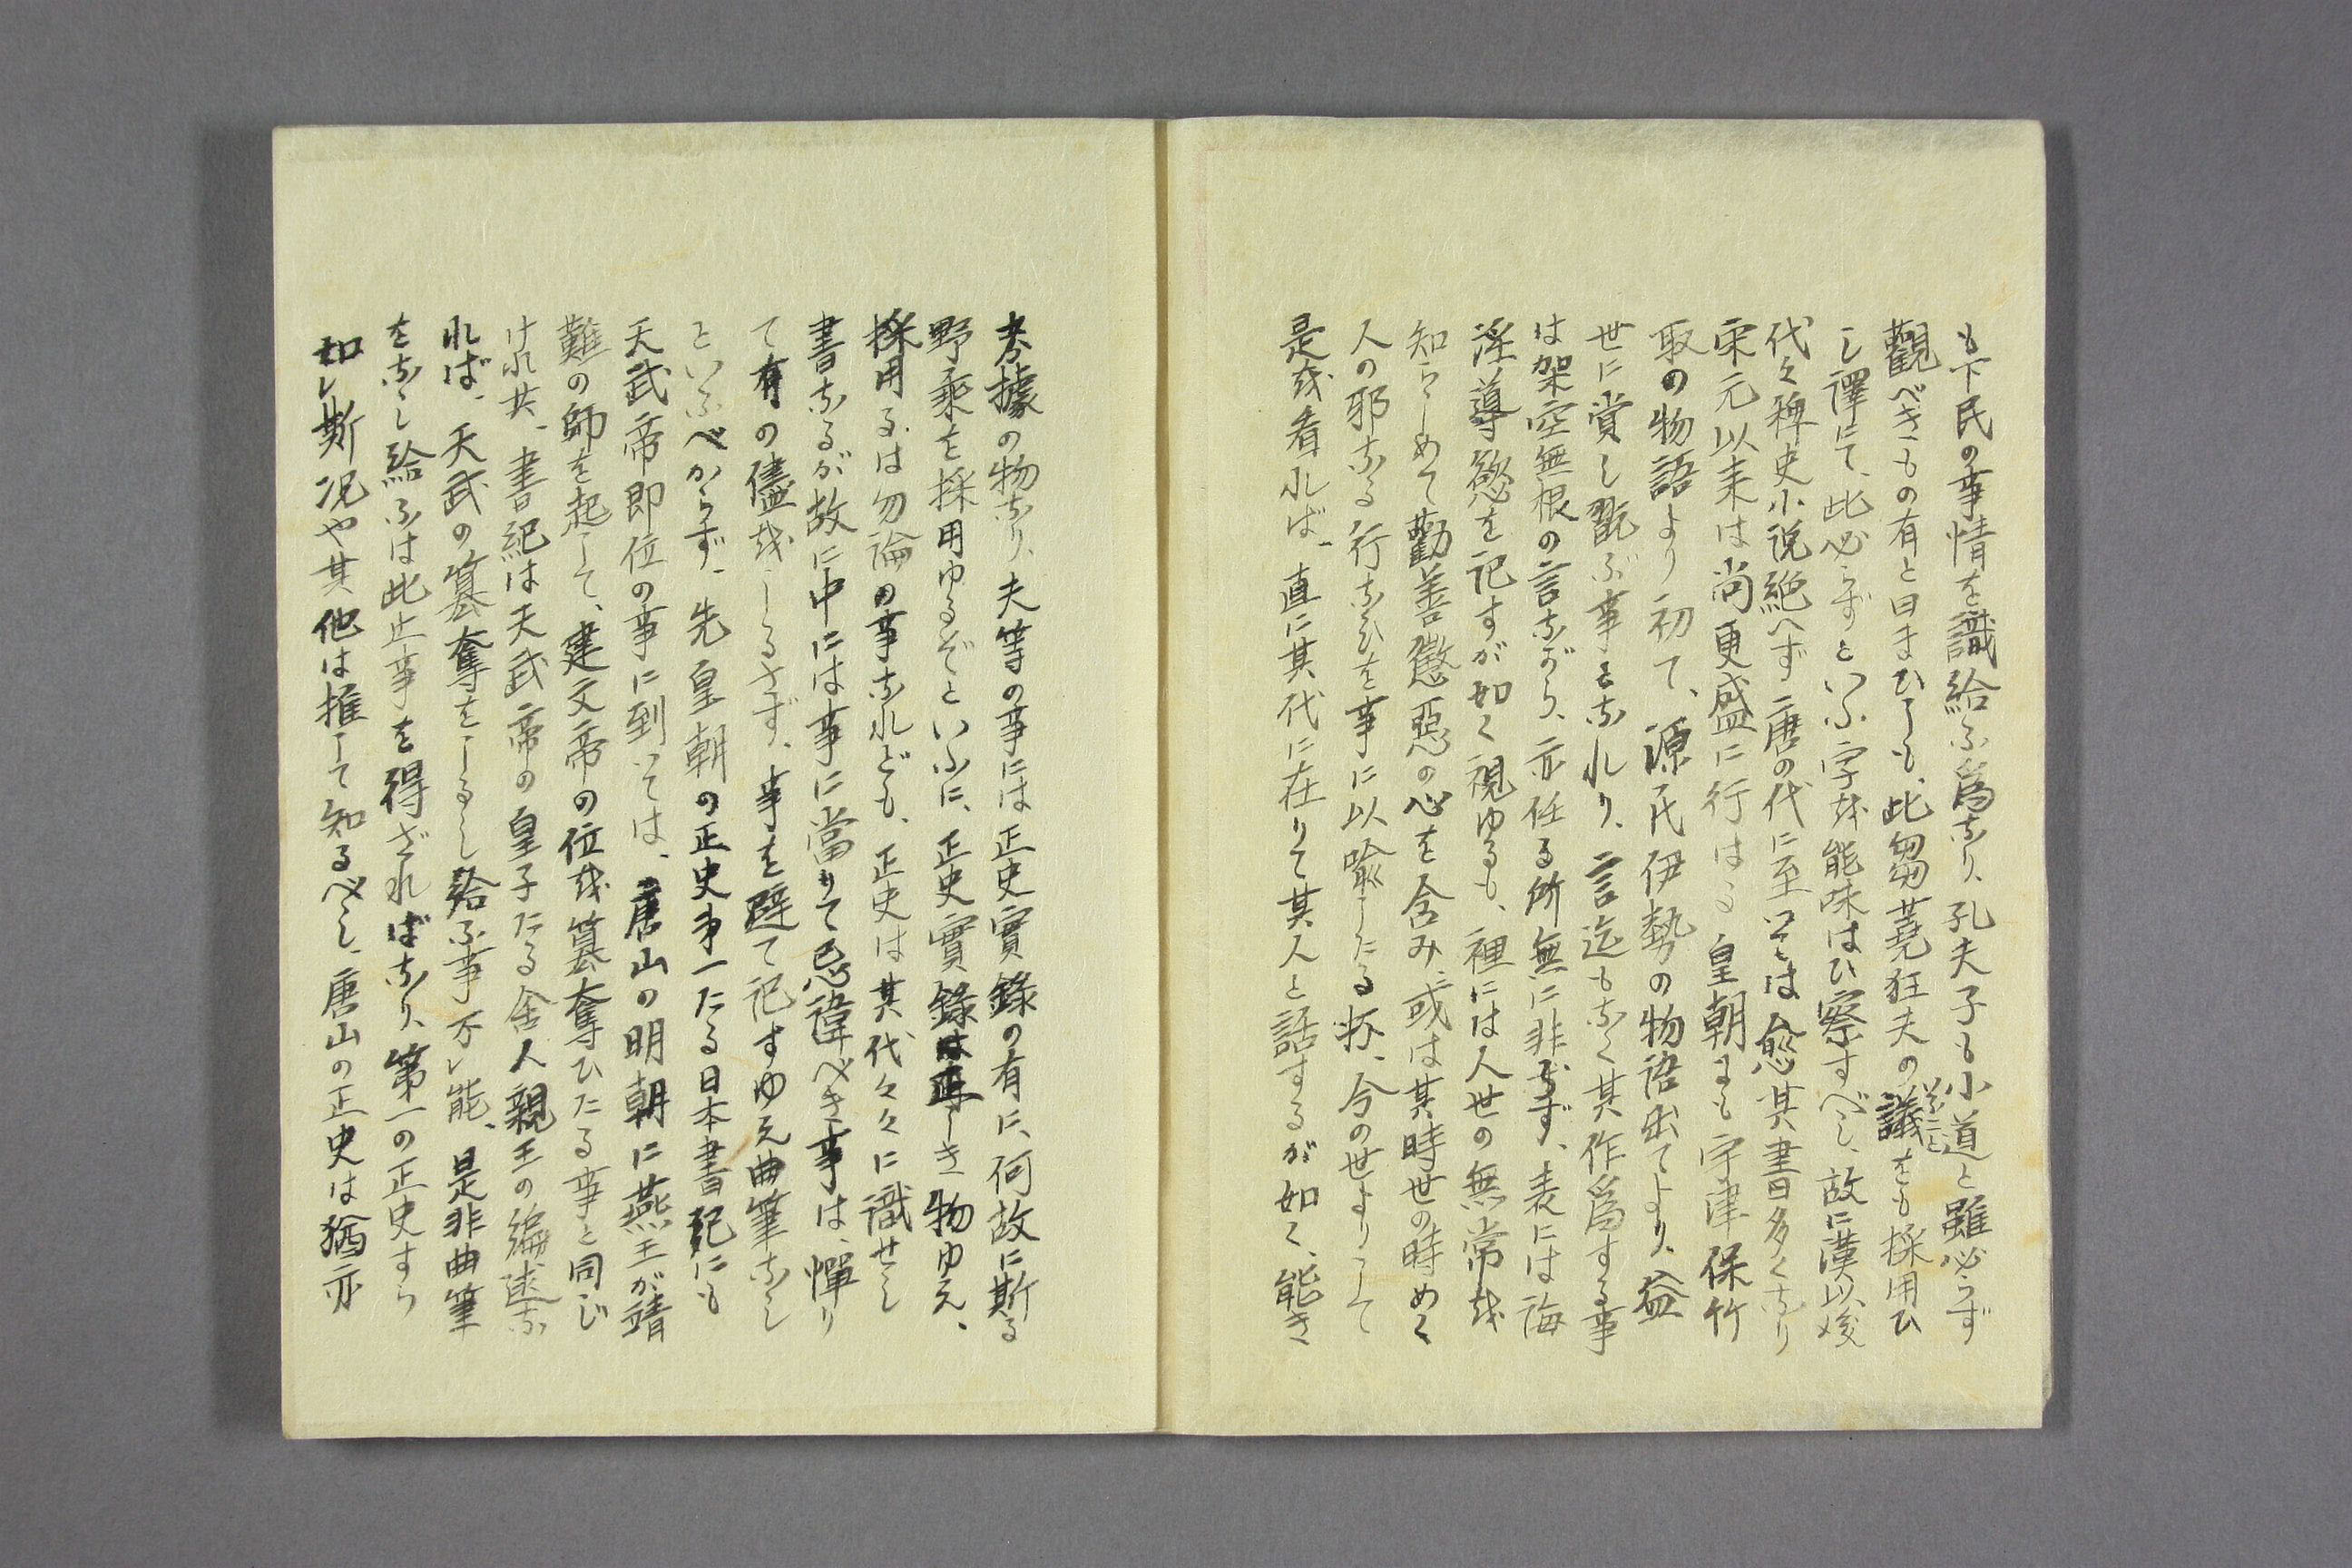 も下民の事情を識給ふ爲なり、孔夫子も小道と雖必らず
觀べきもの有と曰まひしも、此芻蕘狂夫の議をも採用ひ
いふこと
し譯にて、此必らずといふ字を能味はひ察すべし、故に漢以後
代々稗史小説絶へず唐の代に至ては愈其書多くなり
宋元以来は尚更盛に行はる皇朝にも宇津保竹
取の物語より初て、源氏伊勢の物語出てより、益
世に賞し翫ぶ事となれり、言迄もなく其作爲する事
は架空無根の言ながら、亦任る所無に非ず、表には誨
淫導慾を記すが如く視ゆるも、裡には人世の無常を
知らしめて勸善懲惡の心を含み、或は其時世の時めく
人の邪なる行なひを事に以喩したる抔、今の世よりして
是を看れば、直に其代に在りて其人と話するが如く、能き
考據の物なり、夫等の事には正史實錄の有に、何故に斯る
野乘を採用ゆるぞといふに、正史實錄は正しき物ゆえ、
採用るは勿論の事なれども、正史は其代々々に識せし
書なるが故に中には事に當りて忌諱べき事は、憚り
て有の儘をしるさず、事を避て記すゆえ曲筆なし
といふべからず、先皇朝の正史第一たる日本書紀にも
天武帝即位の事に到ては、唐山の明朝に燕王が靖
難の師を起して、建文帝の位を簒奪ひたる事と同じ
けれ共、書紀は天武帝の皇子たる舍人親王の編述な
れば、天武の簒奪をしるし給ふ事不レ能、是非曲筆
をなし給ふは此止事を得ざればなり、第一の正史すら
如レ斯况や其他は推して知るべし、唐山の正史は猶亦